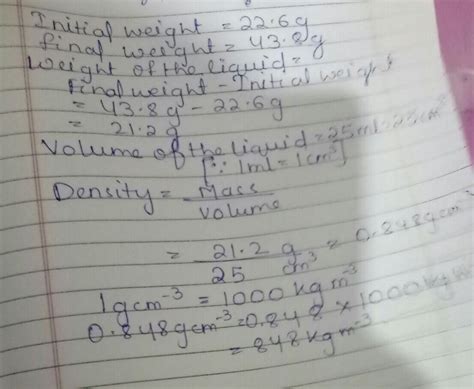 Initial weight = 22.6g
final weight = 43.8g
Weight of the liquid =
Final weight - Initial weight
= 43.8g - 22.6g
= 21.2g
Volume of the liquid = 25ml = 25cm³
[∵ 1ml = 1cm³]
Density = Mass / Volume
= 21.2 g / 25 cm³ = 0.848gcm⁻³
1gcm⁻³ = 1000kgm⁻³
0.848gcm⁻³ = 0.848 × 1000
= 848kgm⁻³